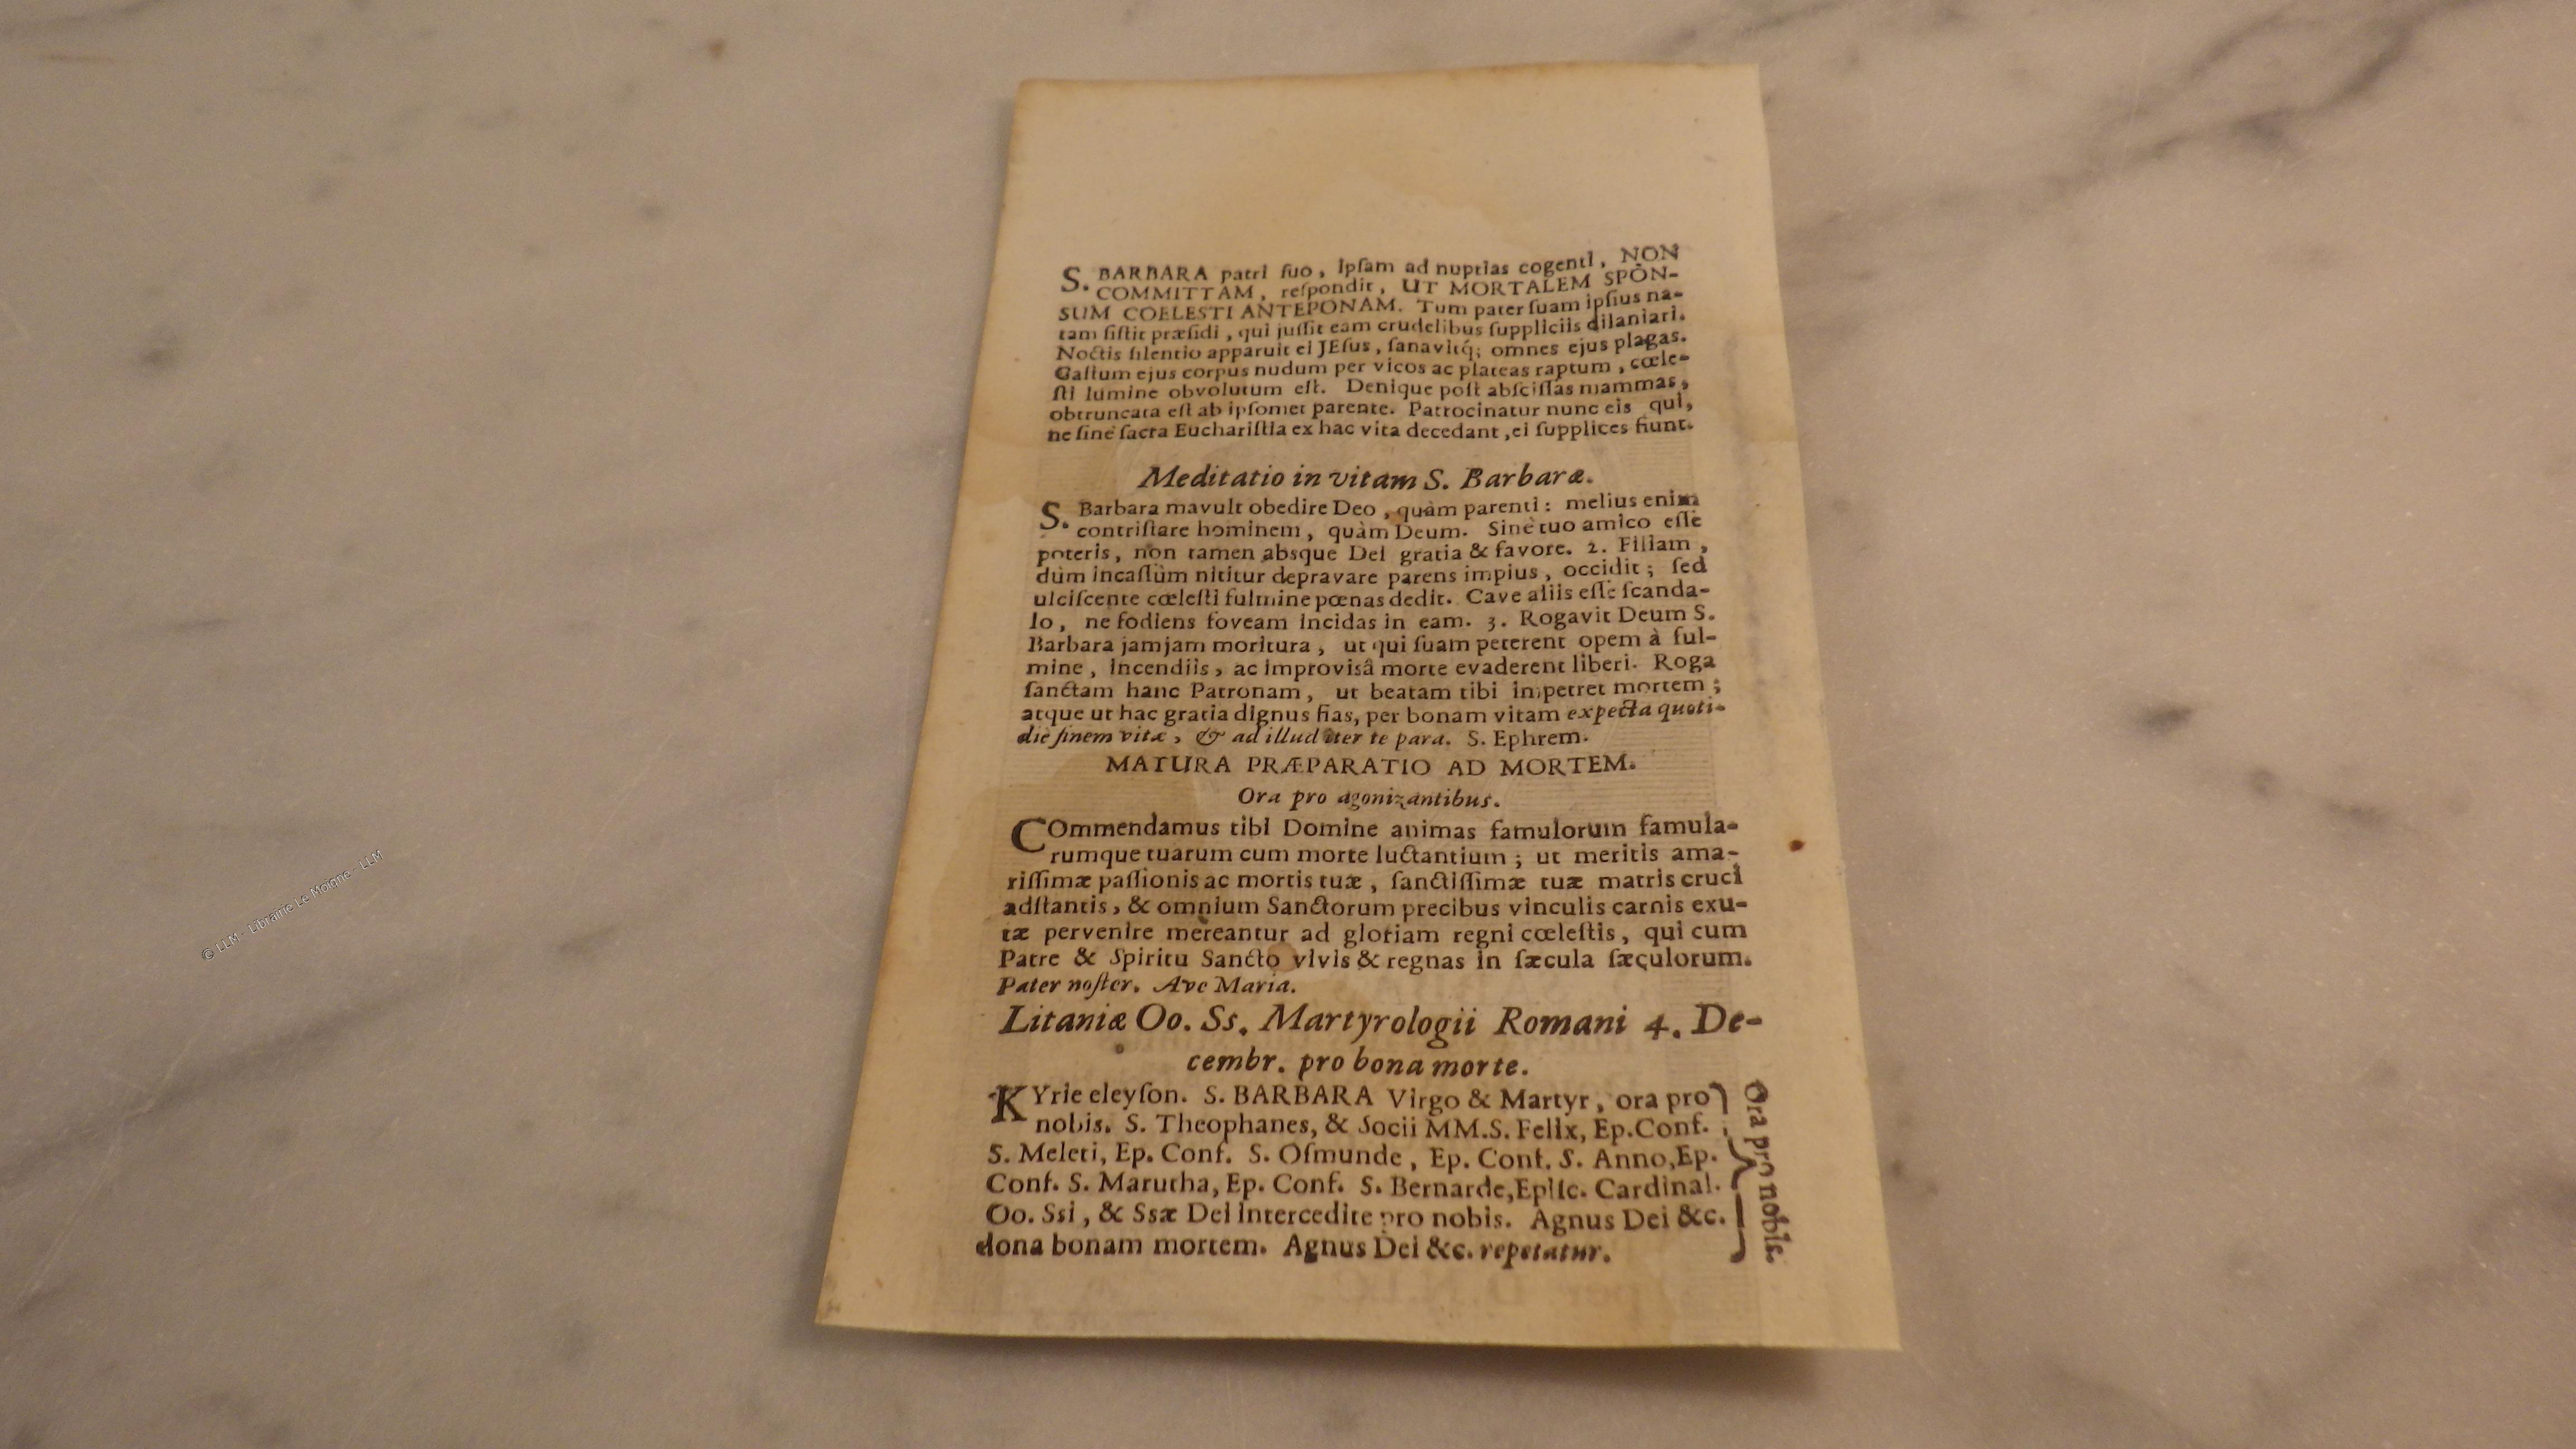 S. BARBARA patri ſuo, ipſam ad nuptias cogenti, NON
COMMITTAM, reſpondit, UT MORTALEM SPON-
SUM COELESTI ANTEPONAM. Tum pater ſuam ipſius na-
tam ſiſtit præſidi, qui juſſit eam crudelibus ſuppliciis dilaniari.
Noctis ſilentio apparuit ei JEſus, ſanavitq́; omnes ejus plagas.
Caſtum ejus corpus nudum per vicos ac plateas raptum, cœle-
ſti lumine obvolutum eſt. Denique poſt abſciſſas mammas,
obtruncata eſt ab ipſomet parente. Patrocinatur nunc eis qui,
ne ſine ſacra Euchariſtia ex hac vita decedant, ei ſupplices fiunt.
Meditatio in vitam S. Barbaræ.
S. Barbara mavult obedire Deo, quàm parenti: melius enim
contriſtare hominem, quàm Deum. Sine tuo amico eſſe
poteris, non tamen absque Dei gratia & favore. 2. Filiam,
dùm incaſſùm nititur depravare parens impius, occidit; ſed
ulciſcente cœleſti fulmine pœnas dedit. Cave aliis eſſe ſcanda-
lo, ne fodiens foveam incidas in eam. 3. Rogavit Deum S.
Barbara jamjam moritura, ut qui ſuam peterent opem à ful-
mine, incendiis, ac improvisâ morte evaderent liberi. Roga
ſanctam hanc Patronam, ut beatam tibi impetret mortem;
atque ut hac gratia dignus fias, per bonam vitam expecta quoti-
die finem vitæ, & ad illud iter te para. S. Ephrem.
MATURA PRÆPARATIO AD MORTEM.
Ora pro agonizantibus.
COmmendamus tibi Domine animas famulorum famula-
rumque tuarum cum morte luctantium; ut meritis ama-
riſſimæ paſſionis ac mortis tuæ, ſanctiſſimæ tuæ matris cruci
adſtantis, & omnium Sanctorum precibus vinculis carnis exu-
tæ pervenire mereantur ad gloriam regni cœleſtis, qui cum
Patre & Spiritu Sancto vivis & regnas in ſæcula ſæculorum.
Pater noſter. Ave Maria.
Litaniæ Oo. Ss. Martyrologii Romani 4. De-
cembr. pro bona morte.
KYrie eleyſon. S. BARBARA Virgo & Martyr, ora pro
nobis. S. Theophanes, & Socii MM. S. Felix, Ep. Conf.
S. Meleti, Ep. Conf. S. Oſmunde, Ep. Conf. S. Anno, Ep.
Conf. S. Marutha, Ep. Conf. S. Bernarde, Epiſc. Cardinal.
Oo. Ssi, & Ssæ Dei intercedite pro nobis. Agnus Dei &c.
dona bonam mortem. Agnus Dei &c. repetatur.
Ora pro nobis.
© LLM - Librairie Le Moigne - LLM